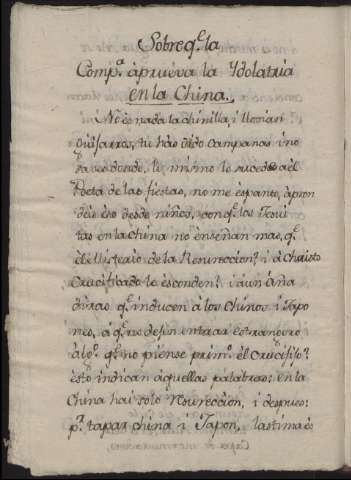 Sobre q.e la
Comp.a aprueva la Ydolatria
en la China.
No es nada la chinilla, i llorian
tu has oido campanas i no
saves donde, lo mismo le sucede a el
Poeta de las fiestas, no me espanto, apren
deis eso desde niños, con q.e los Jesui
tas en la China no enseñan mas, q.e
el Misterio de la Resureccion? i a Christo
Crucificado le esconden? i aun aña
diras q.e inducen a los Chinos i Japo
nes, a q.e no dejen entrar estrangero
alg.o q.e no piense prim.o el Crucifijo?
esto indican aquellas palabras: en la
China hai solo Resureccion, i despues:
p.a tapar China i Japon, lastima es